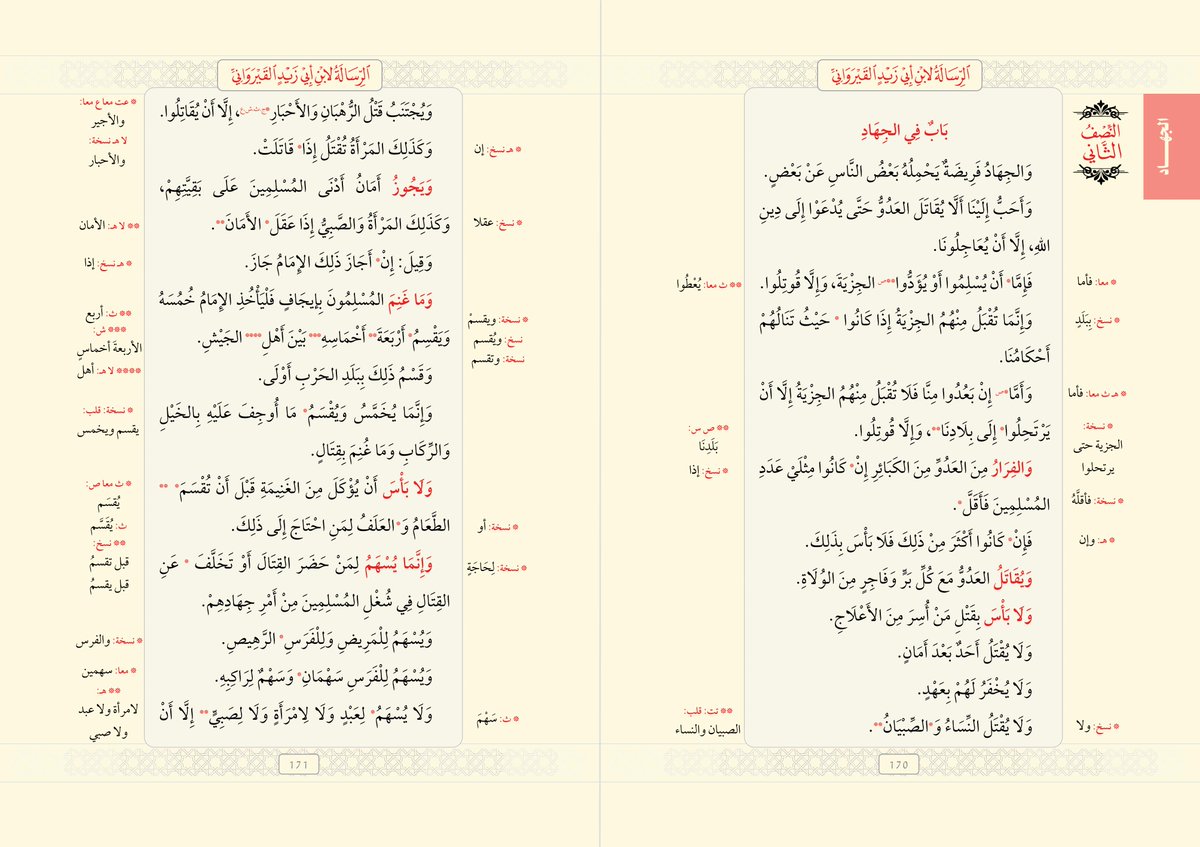 الرِّسَالَةُ لِابْنِ أَبِي زَيْدٍ القَيْرَوَانِيِّ
الجهاد
النِّصْفُ
الثَّانِي
بَابٌ فِي الجِهَادِ
وَالجِهَادُ فَرِيضَةٌ يَحْمِلُهُ بَعْضُ النَّاسِ عَنْ بَعْضٍ.
وَأَحَبُّ إِلَيْنَا أَلَّا يُقَاتَلَ العَدُوُّ حَتَّى يُدْعَوْا إِلَى دِينِ
اللهِ، إِلَّا أَنْ يُعَاجِلُونَا.
فَإِمَّا* أَنْ يُسْلِمُوا أَوْ يُؤَدُّوا** الجِزْيَةَ، وَإِلَّا قُوتِلُوا.
وَإِنَّمَا تُقْبَلُ مِنْهُمُ الجِزْيَةُ إِذَا كَانُوا * حَيْثُ تَنَالُهُمْ
أَحْكَامُنَا.
وَأَمَّا* إِنْ بَعُدُوا مِنَّا فَلَا تُقْبَلُ مِنْهُمُ الجِزْيَةُ إِلَّا أَنْ
يَرْتَحِلُوا* إِلَى بِلَادِنَا**، وَإِلَّا قُوتِلُوا.
وَالفِرَارُ مِنَ العَدُوِّ مِنَ الكَبَائِرِ إِنْ* كَانُوا مِثْلَيْ عَدَدِ
المُسْلِمِينَ فَأَقَلَّ*.
فَإِنْ* كَانُوا أَكْثَرَ مِنْ ذَلِكَ فَلَا بَأْسَ بِذَلِكَ.
وَيُقَاتَلُ العَدُوُّ مَعَ كُلِّ بَرٍّ وَفَاجِرٍ مِنَ الوُلَاةِ.
وَلَا بَأْسَ بِقَتْلِ مَنْ أُسِرَ مِنَ الأَعْلَاجِ.
وَلَا يُقْتَلُ أَحَدٌ بَعْدَ أَمَانٍ.
وَلَا يُخْفَرُ لَهُمْ بِعَهْدٍ.
وَلَا يُقْتَلُ النِّسَاءُ وَ*الصِّبْيَانُ**.
* معا: فأما
* نسخ: بِبَلَدٍ
* هـ ث معا: فأما
* نسخة:
الجزية حتى
يرتحلوا
* نسخة: فأقلَّهُ
* هـ: وإن
* نسخ: ولا
** ث معا: يُعْطُوا
** ص س:
بَلَدِنَا
* نسخ: إذا
** تت: قلب:
الصبيان والنساء
170
الرِّسَالَةُ لِابْنِ أَبِي زَيْدٍ القَيْرَوَانِيِّ
وَيُجْتَنَبُ قَتْلُ الرُّهْبَانِ وَالأَحْبَارِ*، إِلَّا أَنْ يُقَاتِلُوا.
وَكَذَلِكَ المَرْأَةُ تُقْتَلُ إِذَا* قَاتَلَتْ.
وَيَجُوزُ أَمَانُ أَدْنَى المُسْلِمِينَ عَلَى بَقِيَّتِهِمْ،
وَكَذَلِكَ المَرْأَةُ وَالصَّبِيُّ إِذَا عَقَلَ* الأَمَانَ**.
وَقِيلَ: إِنْ* أَجَازَ ذَلِكَ الإِمَامُ جَازَ.
وَمَا غَنِمَ المُسْلِمُونَ بِإِيجَافٍ فَلْيَأْخُذِ الإِمَامُ خُمُسَهُ
وَيَقْسِمُ* أَرْبَعَةَ** أَخْمَاسِهِ*** بَيْنَ أَهْلِ**** الجَيْشِ.
وَقَسْمُ ذَلِكَ بِبَلَدِ الحَرْبِ أَوْلَى.
وَإِنَّمَا يُخَمَّسُ وَيُقْسَمُ* مَا أُوجِفَ عَلَيْهِ بِالخَيْلِ
وَالرِّكَابِ وَمَا غُنِمَ بِقِتَالٍ.
وَلَا بَأْسَ أَنْ يُؤْكَلَ مِنَ الغَنِيمَةِ قَبْلَ أَنْ تُقْسَمَ* **
الطَّعَامُ وَ*العَلَفُ لِمَنِ احْتَاجَ إِلَى ذَلِكَ.
وَإِنَّمَا يُسْهَمُ لِمَنْ حَضَرَ القِتَالَ أَوْ تَخَلَّفَ * عَنِ
القِتَالِ فِي شُغْلِ المُسْلِمِينَ مِنْ أَمْرِ جِهَادِهِمْ.
وَيُسْهَمُ لِلْمَرِيضِ وَلِلْفَرَسِ* الرَّهِيصِ.
وَيُسْهَمُ لِلْفَرَسِ سَهْمَانِ* وَسَهْمٌ لِرَاكِبِهِ.
وَلَا يُسْهَمُ* لِعَبْدٍ وَلَا لِامْرَأَةٍ وَلَا لِصَبِيٍّ** إِلَّا أَنْ
* هـ نسخ: إن
* نسخ: عقلا
* نسخة: ويقسمْ
نسخ: ويُقسم
نسخة: وتقسم
* نسخة: أو
* نسخة: لِحَاجَةٍ
* ث: سَهْمَ
* عت معا ع معا:
والأجير
لا هـ نسخة:
والأحبار
** لا هـ: الأمان
* هـ نسخ: إذا
** ث: أربع
*** ش:
الأربعةَ أخماسٍ
**** لا هـ: أهل
* نسخة: قلب:
يقسم ويخمس
* ث معا ص:
يُقسَم
ث: يُقَسَّم
** نسخ:
قبل تقسمُ
قبل يقسمُ
* نسخة: والفرس
* معا: سهمين
** هـ:
لامرأة ولا عبد
ولا صبي
171